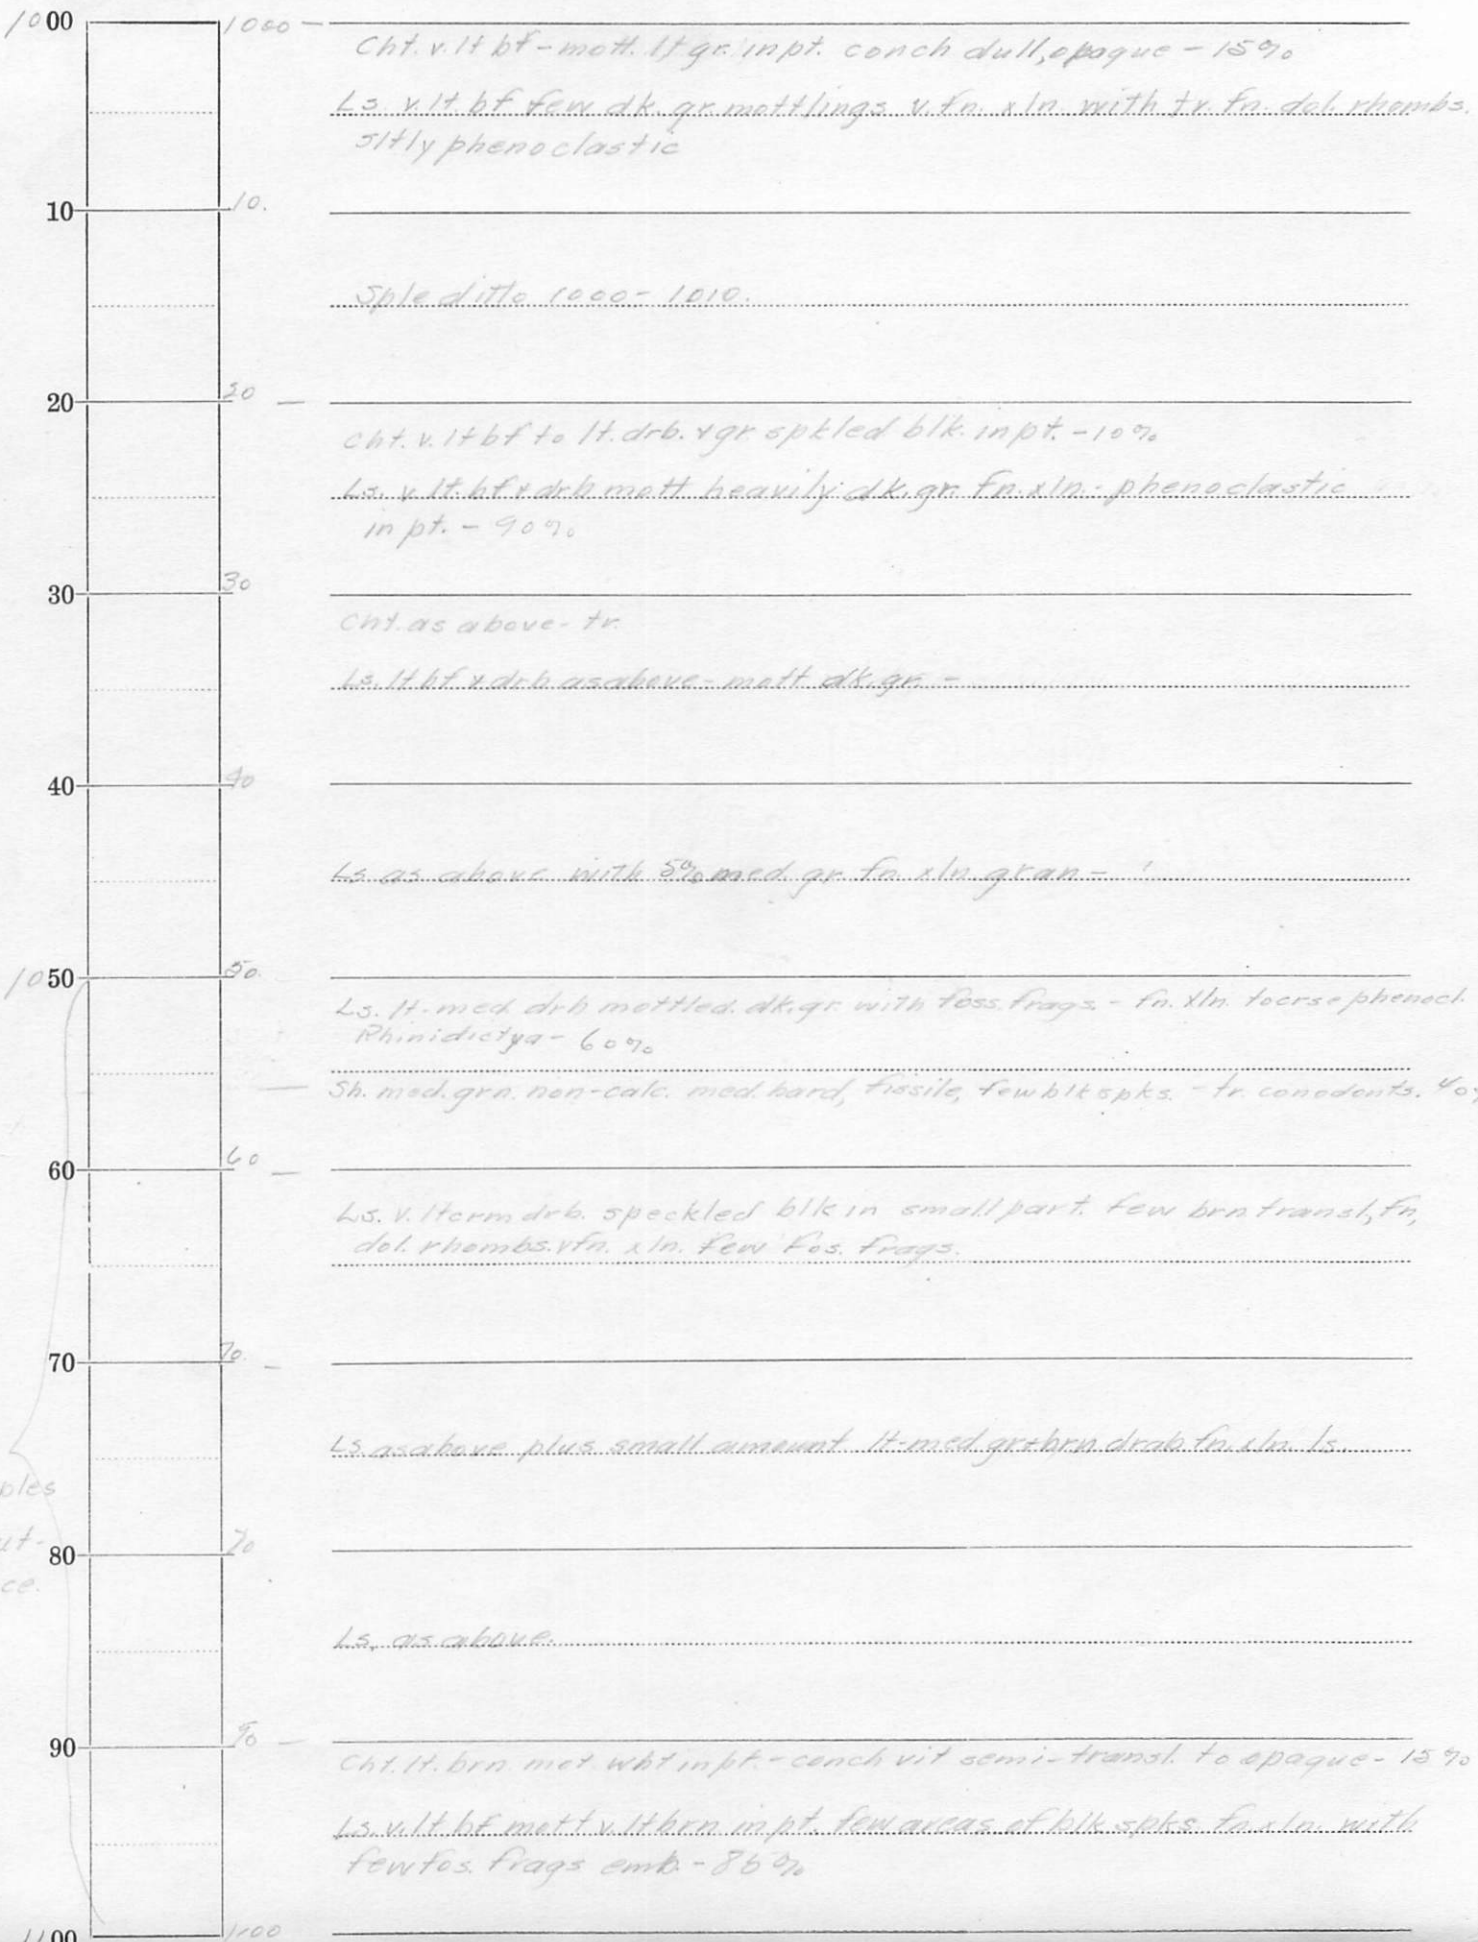 1000 1000 —
Cht. v. lt bf - mott. lt gr. in pt. conch dull, opaque - 15%
Ls. v. lt. bf few dk. gr. mottlings v. fn. xln. with tr. fn. dol. rhombs.
sltly phenoclastic
10 10.
Sple ditto 1000 - 1010.
20 20 —
Cht. v. lt bf to lt. drb. + gr. spkled blk. in pt. - 10%
Ls. v. lt. bf + drb mott heavily dk. gr. fn. xln. - phenoclastic
in pt. - 90%
30 30
Cht. as above - tr.
Ls. lt bf + drb as above - mott dk. gr. -
40 40
Ls as above with 5% med. gr. fn. xln. gran -
1050 50.
Ls. lt - med. drb mottled. dk. gr. with foss. frags. - fn. xln. to crse phenocl.
Rhinidictya - 60%
— Sh. med. grn. non-calc. med. hard, fissile, few blk spks. - tr. conodonts. 40%
60 60 —
Ls. v. lt crm drb. speckled blk in small part. few brn transl, fn,
dol. rhombs. vfn. xln. few fos. frags.
70 70. —
Ls. as above plus small amount lt-med gr + brn drab fn. xln. ls.
ples
ut-
80
ce.
Ls, as above.
90 90 —
Cht. lt. brn. mot. wht in pt. - conch vit semi-transl. to opaque - 15%
Ls. v. lt. bf mott v. lt brn in pt. few areas of blk spks fn xln. with
few fos. frags emb. - 85%
1100 1100